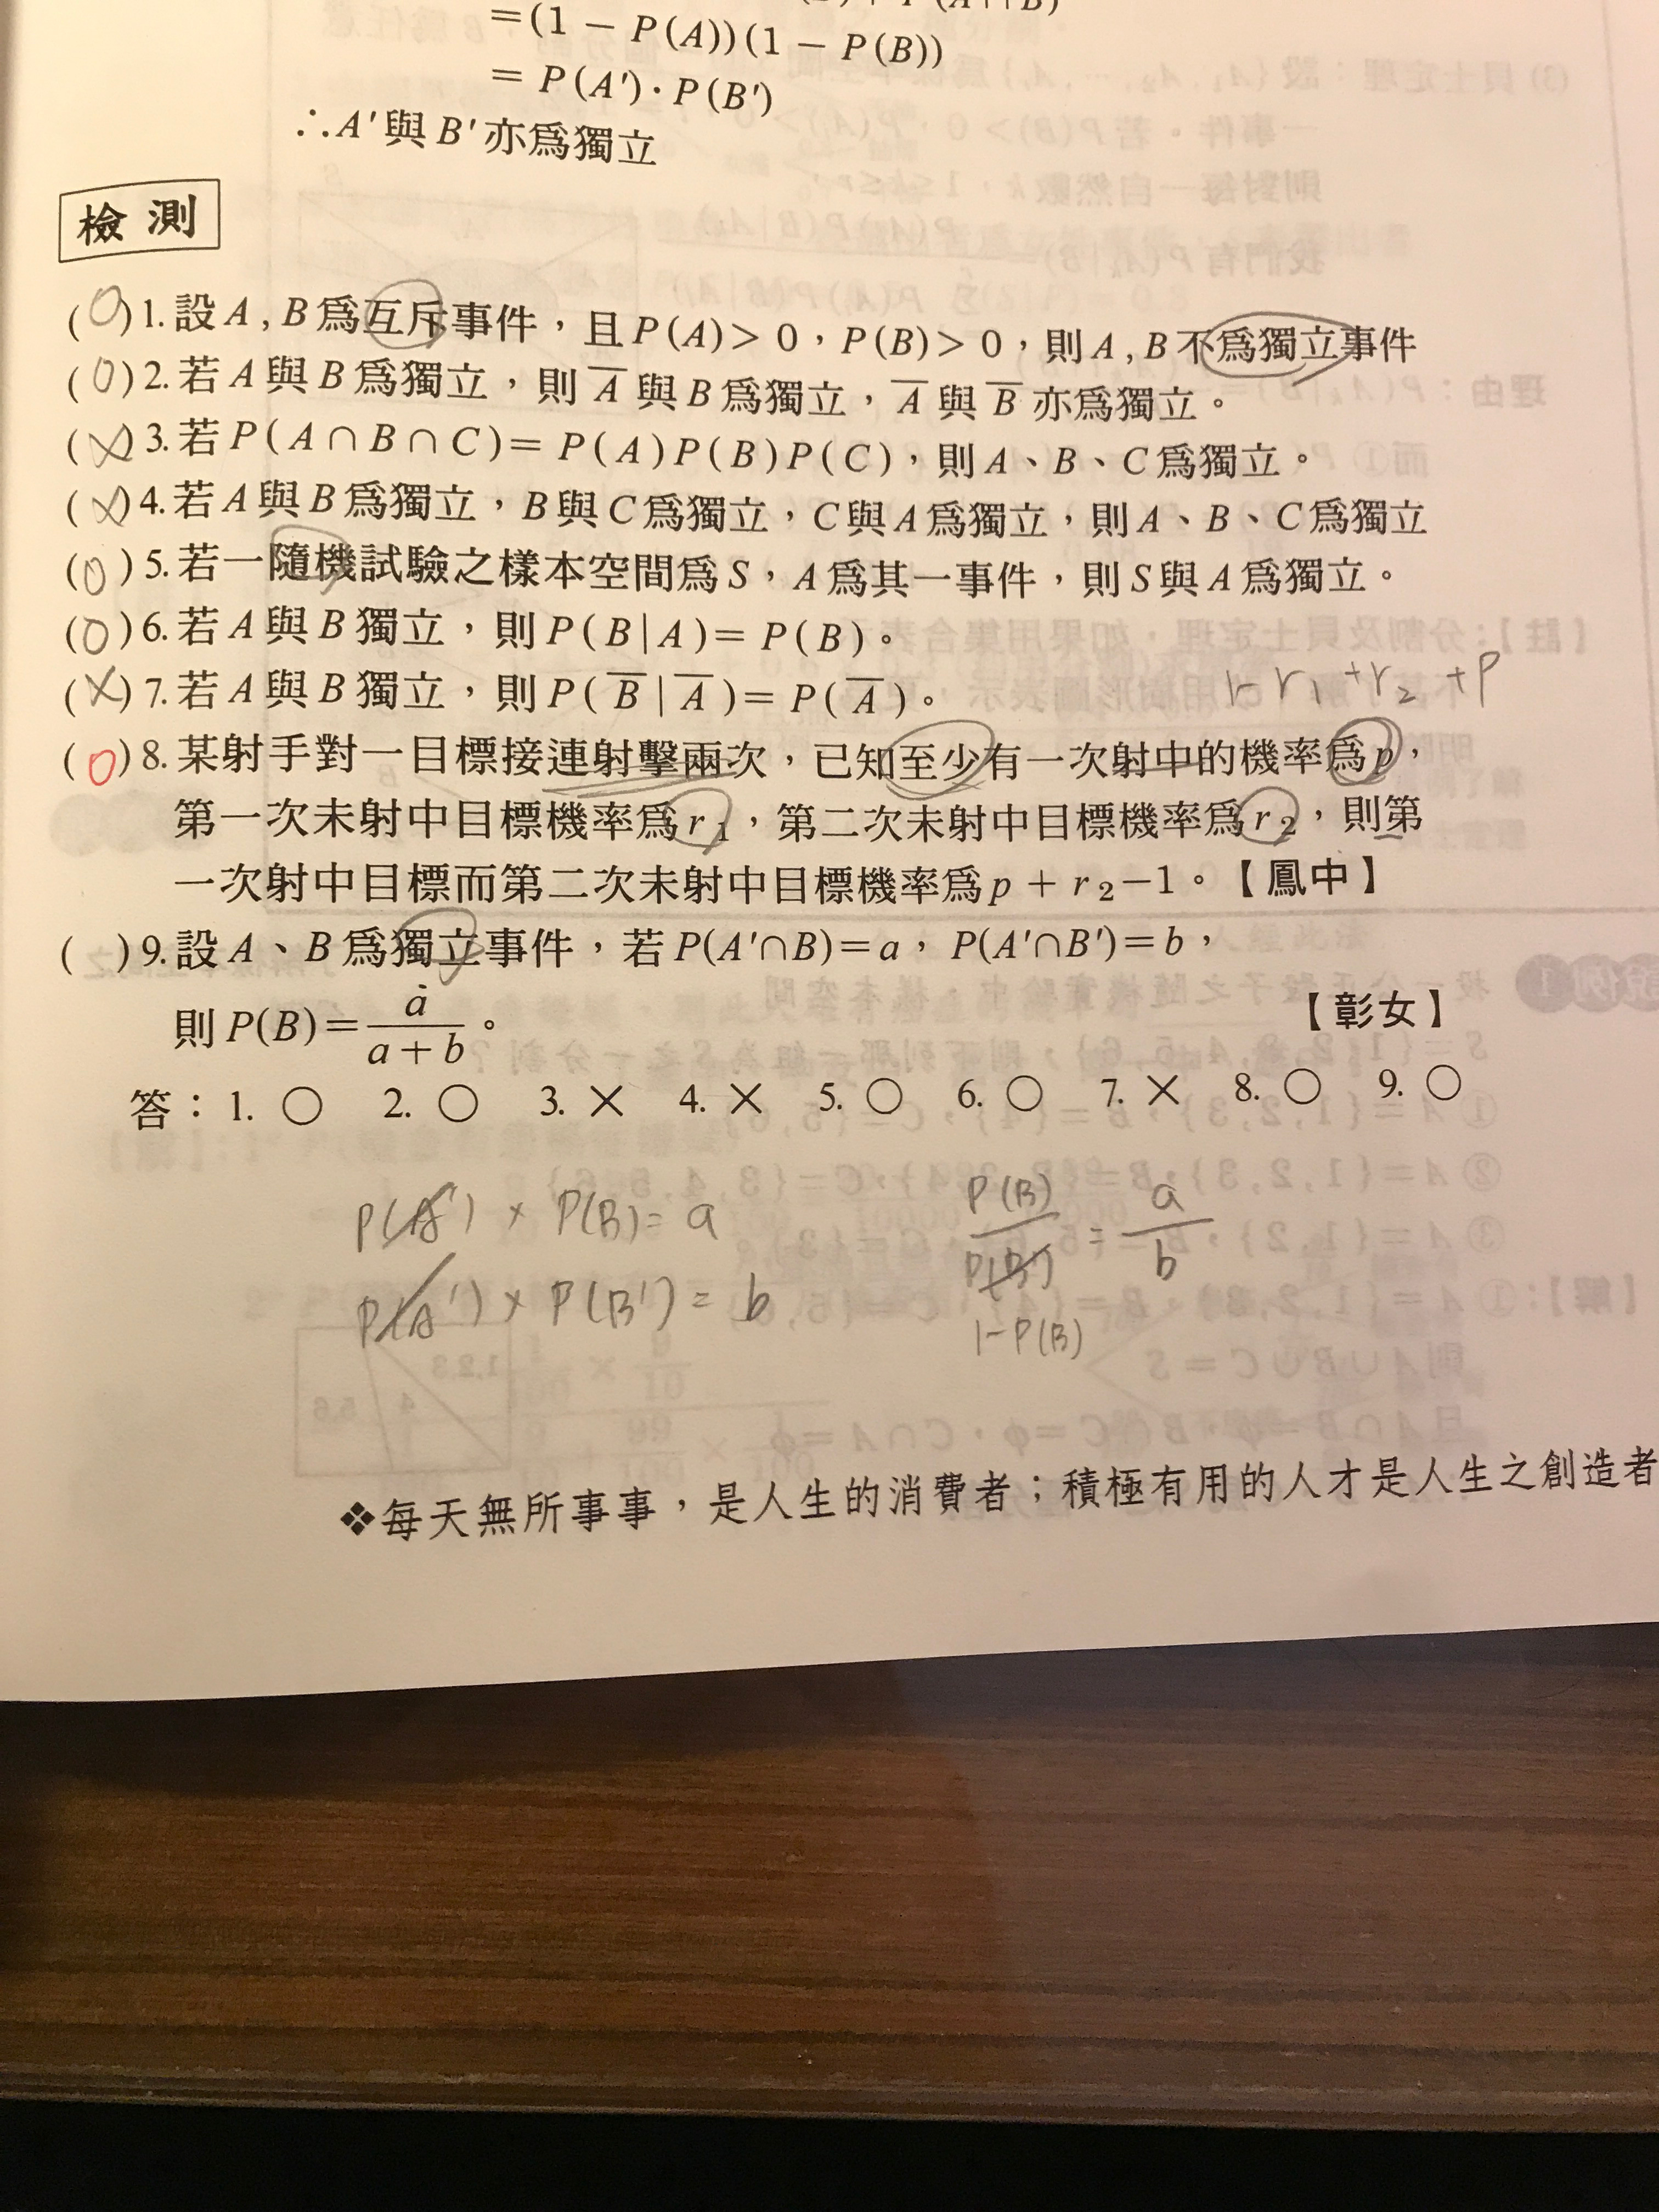 =(1 − P(A))(1 − P(B))
= P(A′)·P(B′)
∴A′與B′亦為獨立
檢測
(O)1.設A,B為互斥事件，且P(A)>0，P(B)>0，則A,B不為獨立事件
(O)2.若A與B為獨立，則A̅與B為獨立，A̅與B̅亦為獨立。
(X)3.若P(A∩B∩C)=P(A)P(B)P(C)，則A、B、C為獨立。
(X)4.若A與B為獨立，B與C為獨立，C與A為獨立，則A、B、C為獨立
(O)5.若一隨機試驗之樣本空間為S，A為其一事件，則S與A為獨立。
(O)6.若A與B獨立，則P(B|A)=P(B)。
(X)7.若A與B獨立，則P(B̅|A̅)=P(A̅)。
1-r₁+r₂+P
(O)8.某射手對一目標接連射擊兩次，已知至少有一次射中的機率為p，
第一次未射中目標機率為r₁，第二次未射中目標機率為r₂，則第
一次射中目標而第二次未射中目標機率為p+r₂−1。【鳳中】
( )9.設A、B為獨立事件，若P(A′∩B)=a，P(A′∩B′)=b，
則P(B)=a/(a+b)。 【彰女】
答：1. ○ 2. ○ 3. × 4. × 5. ○ 6. ○ 7. × 8. ○ 9. ○
P(A′) × P(B)= a
P(A′) × P(B′)= b
P(B)/P(B′) = a/b
1-P(B)
❖每天無所事事，是人生的消費者；積極有用的人才是人生之創造者